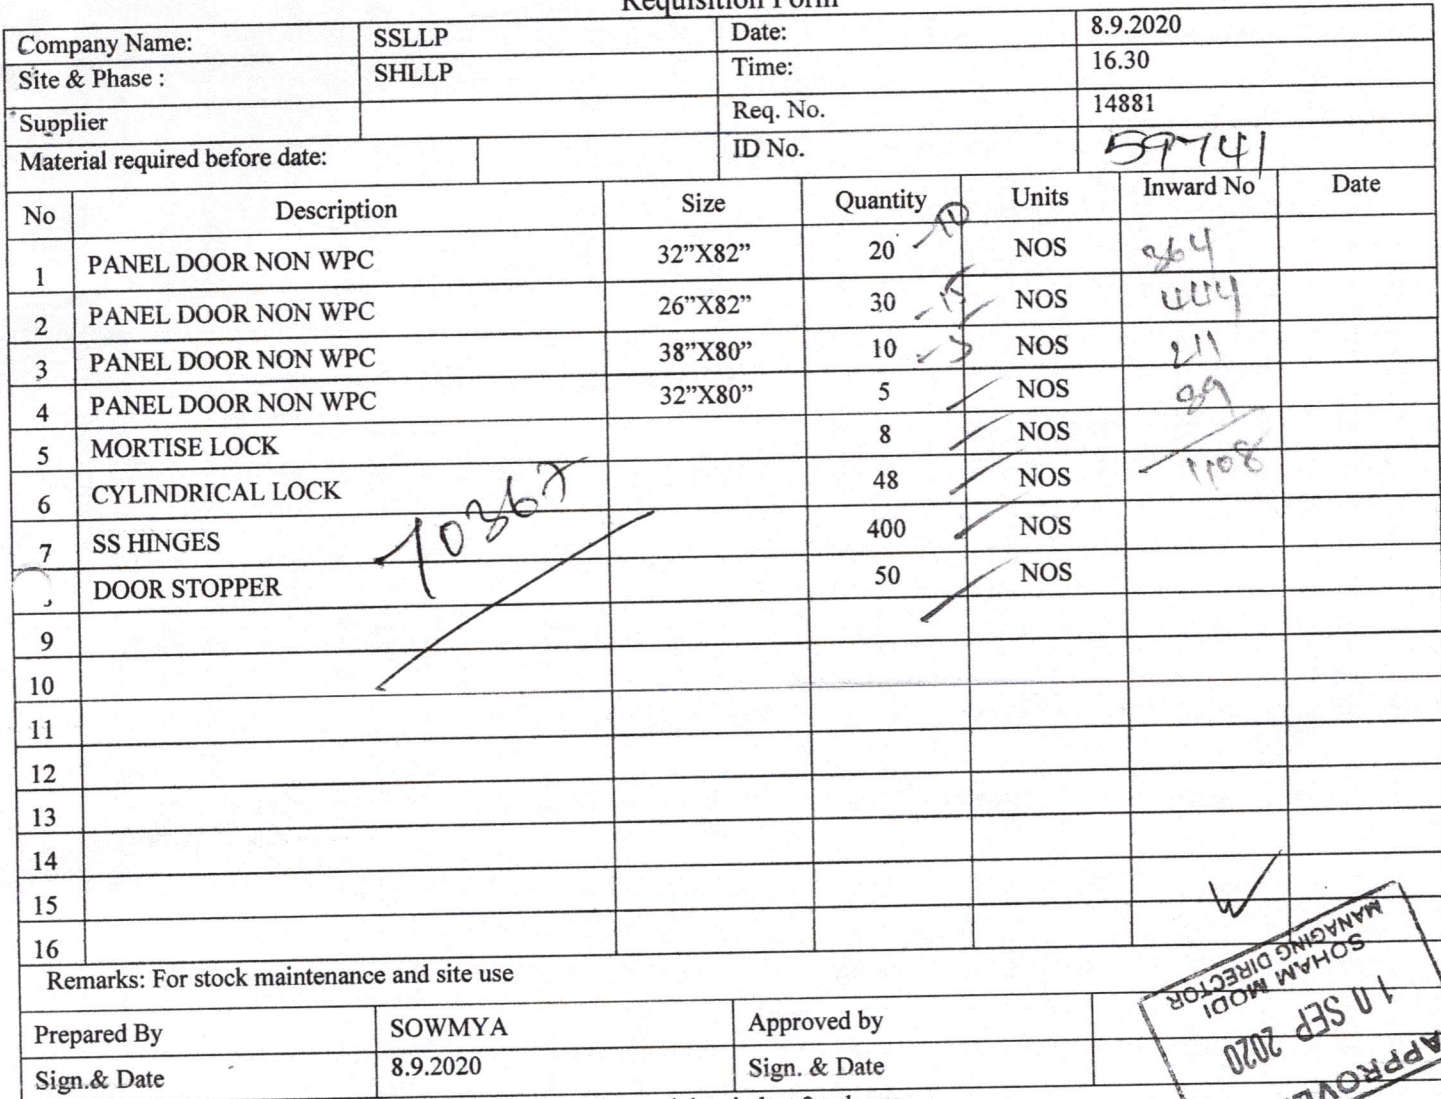 Requisition Form
Company Name: SSLLP Date: 8.9.2020
Site & Phase : SHLLP Time: 16.30
Supplier Req. No. 14881
Material required before date: ID No. 59741
No Description Size Quantity Units Inward No Date
1 PANEL DOOR NON WPC 32”X82” 20 10 NOS 364
2 PANEL DOOR NON WPC 26”X82” 30 15 NOS 444
3 PANEL DOOR NON WPC 38”X80” 10 5 NOS 211
4 PANEL DOOR NON WPC 32”X80” 5 NOS 89
5 MORTISE LOCK 8 NOS
6 CYLINDRICAL LOCK 48 NOS 1108
7 SS HINGES 400 NOS
DOOR STOPPER 50 NOS
70367
9
10
11
12
13
14
15
16
Remarks: For stock maintenance and site use
Prepared By SOWMYA Approved by
Sign.& Date 8.9.2020 Sign. & Date
APPROVE
10 SEP 2020
SOHAM MODI
MANAGING DIRECTOR